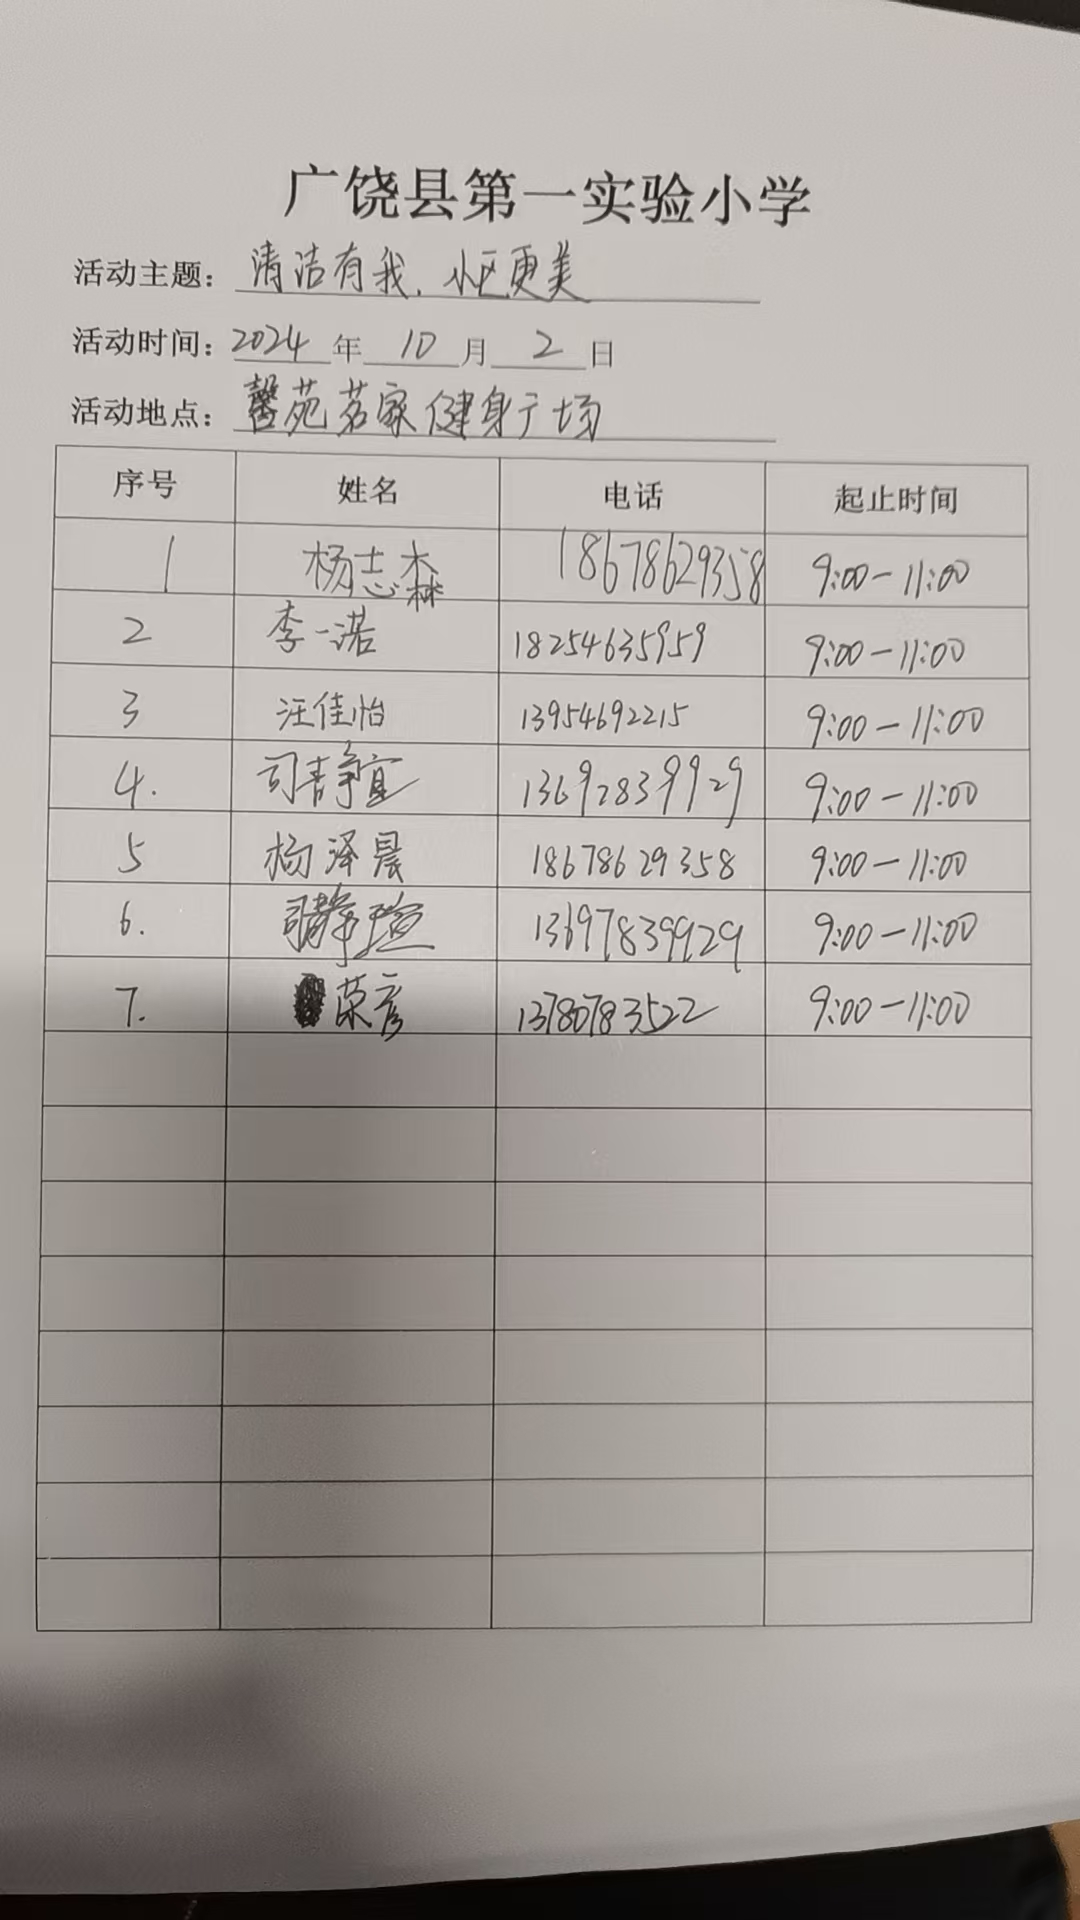 广饶县第一实验小学
活动主题：清洁有我，小区更美
活动时间：2024年10月2日
活动地点：馨苑茗家健身广场
序号 姓名 电话 起止时间
1 杨志森 18678629358 9:00-11:00
2 李一诺 18254635959 9:00-11:00
3 汪佳怡 13954692215 9:00-11:00
4. 司静宜 13692839929 9:00-11:00
5 杨泽晨 18678629358 9:00-11:00
6. 司静瑄 13697839929 9:00-11:00
7. 荣彦 13780783522 9:00-11:00